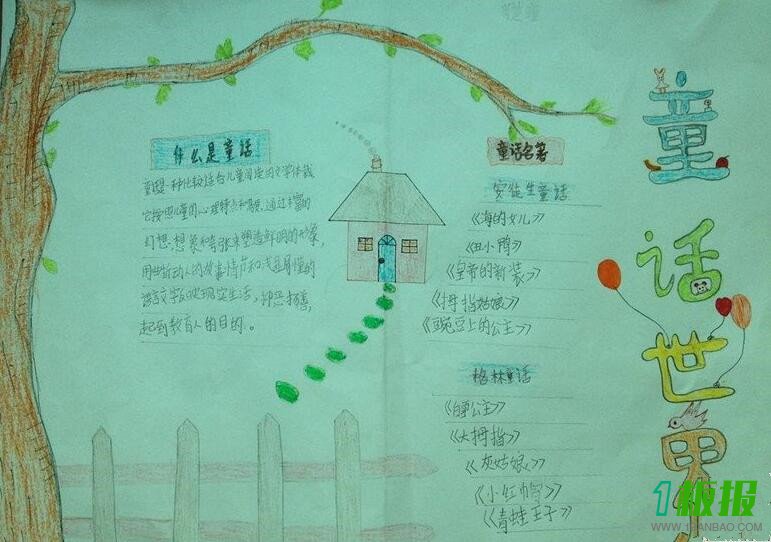 童话世界
什么是童话
童话是一种比较适合儿童阅读的文学体裁
它按照儿童的心理特点和需要,通过丰富的
幻想·想象和夸张来塑造鲜明的形象,
用曲折动人的故事情节和浅显易懂的
语言文字反映现实生活,抑恶扬善,
起到教育人的目的。
童话名著
安徒生童话
《海的女儿》
《丑小鸭》
《皇帝的新装》
《拇指姑娘》
《豌豆上的公主》
格林童话
《白雪公主》
《大拇指》
《灰姑娘》
《小红帽》
《青蛙王子》
1板报
WWW.1BANBAO.COM